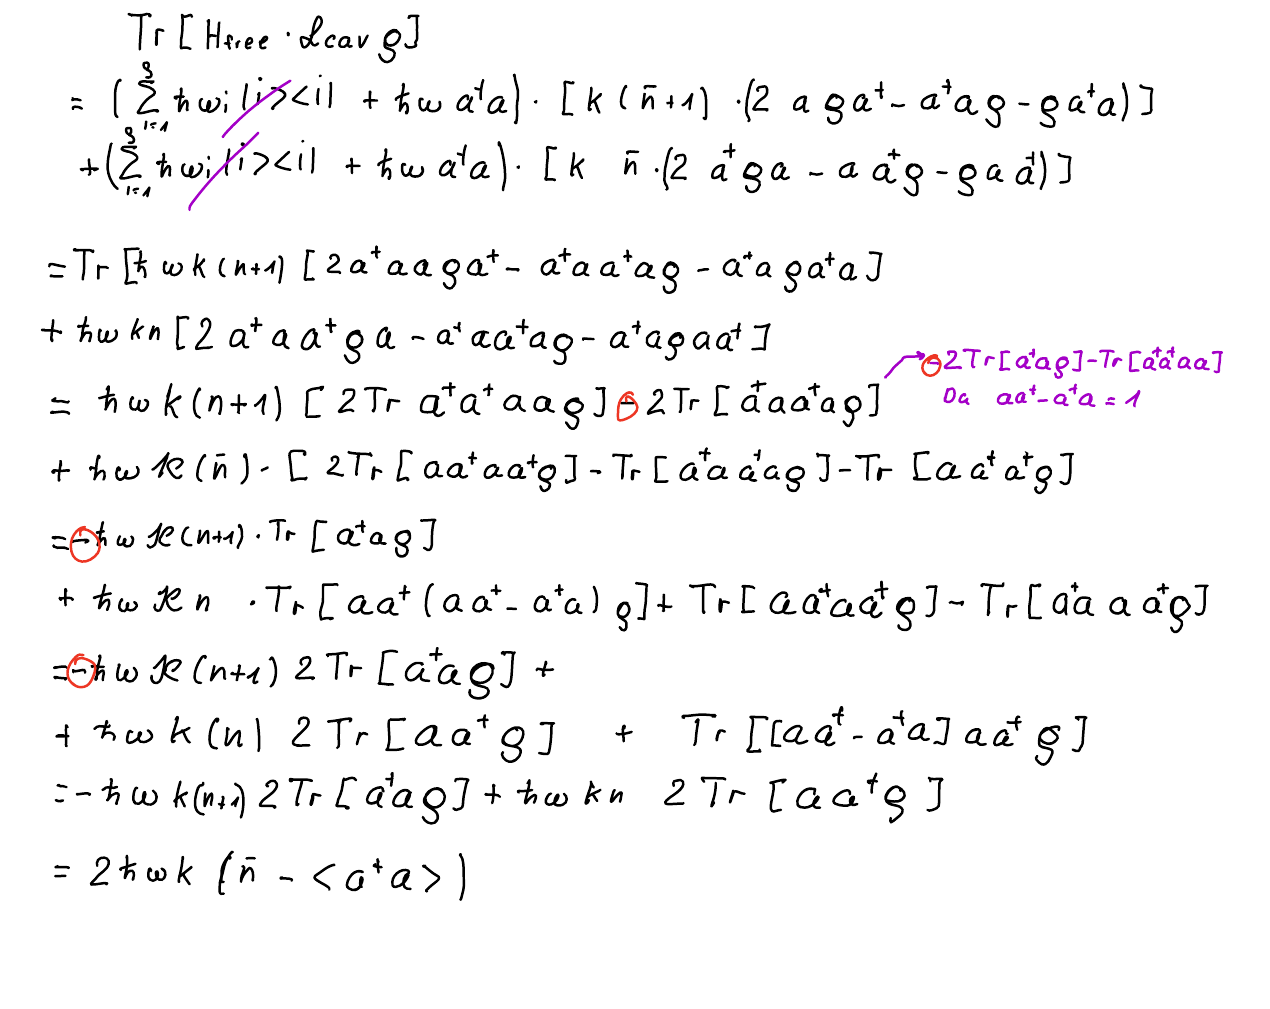 Tr [ Hfree · ℒcav ρ ]
= ( Σ_{i=1}^{3} ħ ω_i |i><i| + ħ ω a†a ) · [ k ( n̄ + 1 ) · (2 a ρ a† - a†a ρ - ρ a†a ) ]
+ ( Σ_{i=1}^{3} ħ ω_i |i><i| + ħ ω a†a ) · [ k n̄ · (2 a† ρ a - a a† ρ - ρ a a† ) ]
= Tr [ ħ ω k (n+1) [ 2 a† a a ρ a† - a†a a†a ρ - a†a ρ a†a ]
+ ħ ω k n [ 2 a† a a† ρ a - a† a a† a ρ - a†a ρ a a† ]
= ħ ω k (n+1) [ 2 Tr a† a† a a ρ ] - 2 Tr [ a† a a† a ρ ]
-2 Tr [ a†a ρ ] - Tr [ a†a†aa ]
Da aa† - a†a = 1
+ ħ ω K (n̄) · [ 2 Tr [ a a† a a† ρ ] - Tr [ a†a a†a ρ ] - Tr [ a a† a† ρ ]
= - ħ ω K (n+1) · Tr [ a†a ρ ]
+ ħ ω K n · Tr [ a a† ( a a† - a†a ) ρ ] + Tr [ a a† a a† ρ ] - Tr [ a†a a a† ρ ]
= - ħ ω K (n+1) 2 Tr [ a†a ρ ] +
+ ħ ω k (n) 2 Tr [ a a† ρ ] + Tr [ [ a a† - a†a ] a a† ρ ]
= - ħ ω k (n+1) 2 Tr [ a†a ρ ] + ħ ω k n 2 Tr [ a a† ρ ]
= 2 ħ ω k ( n̄ - < a†a > )